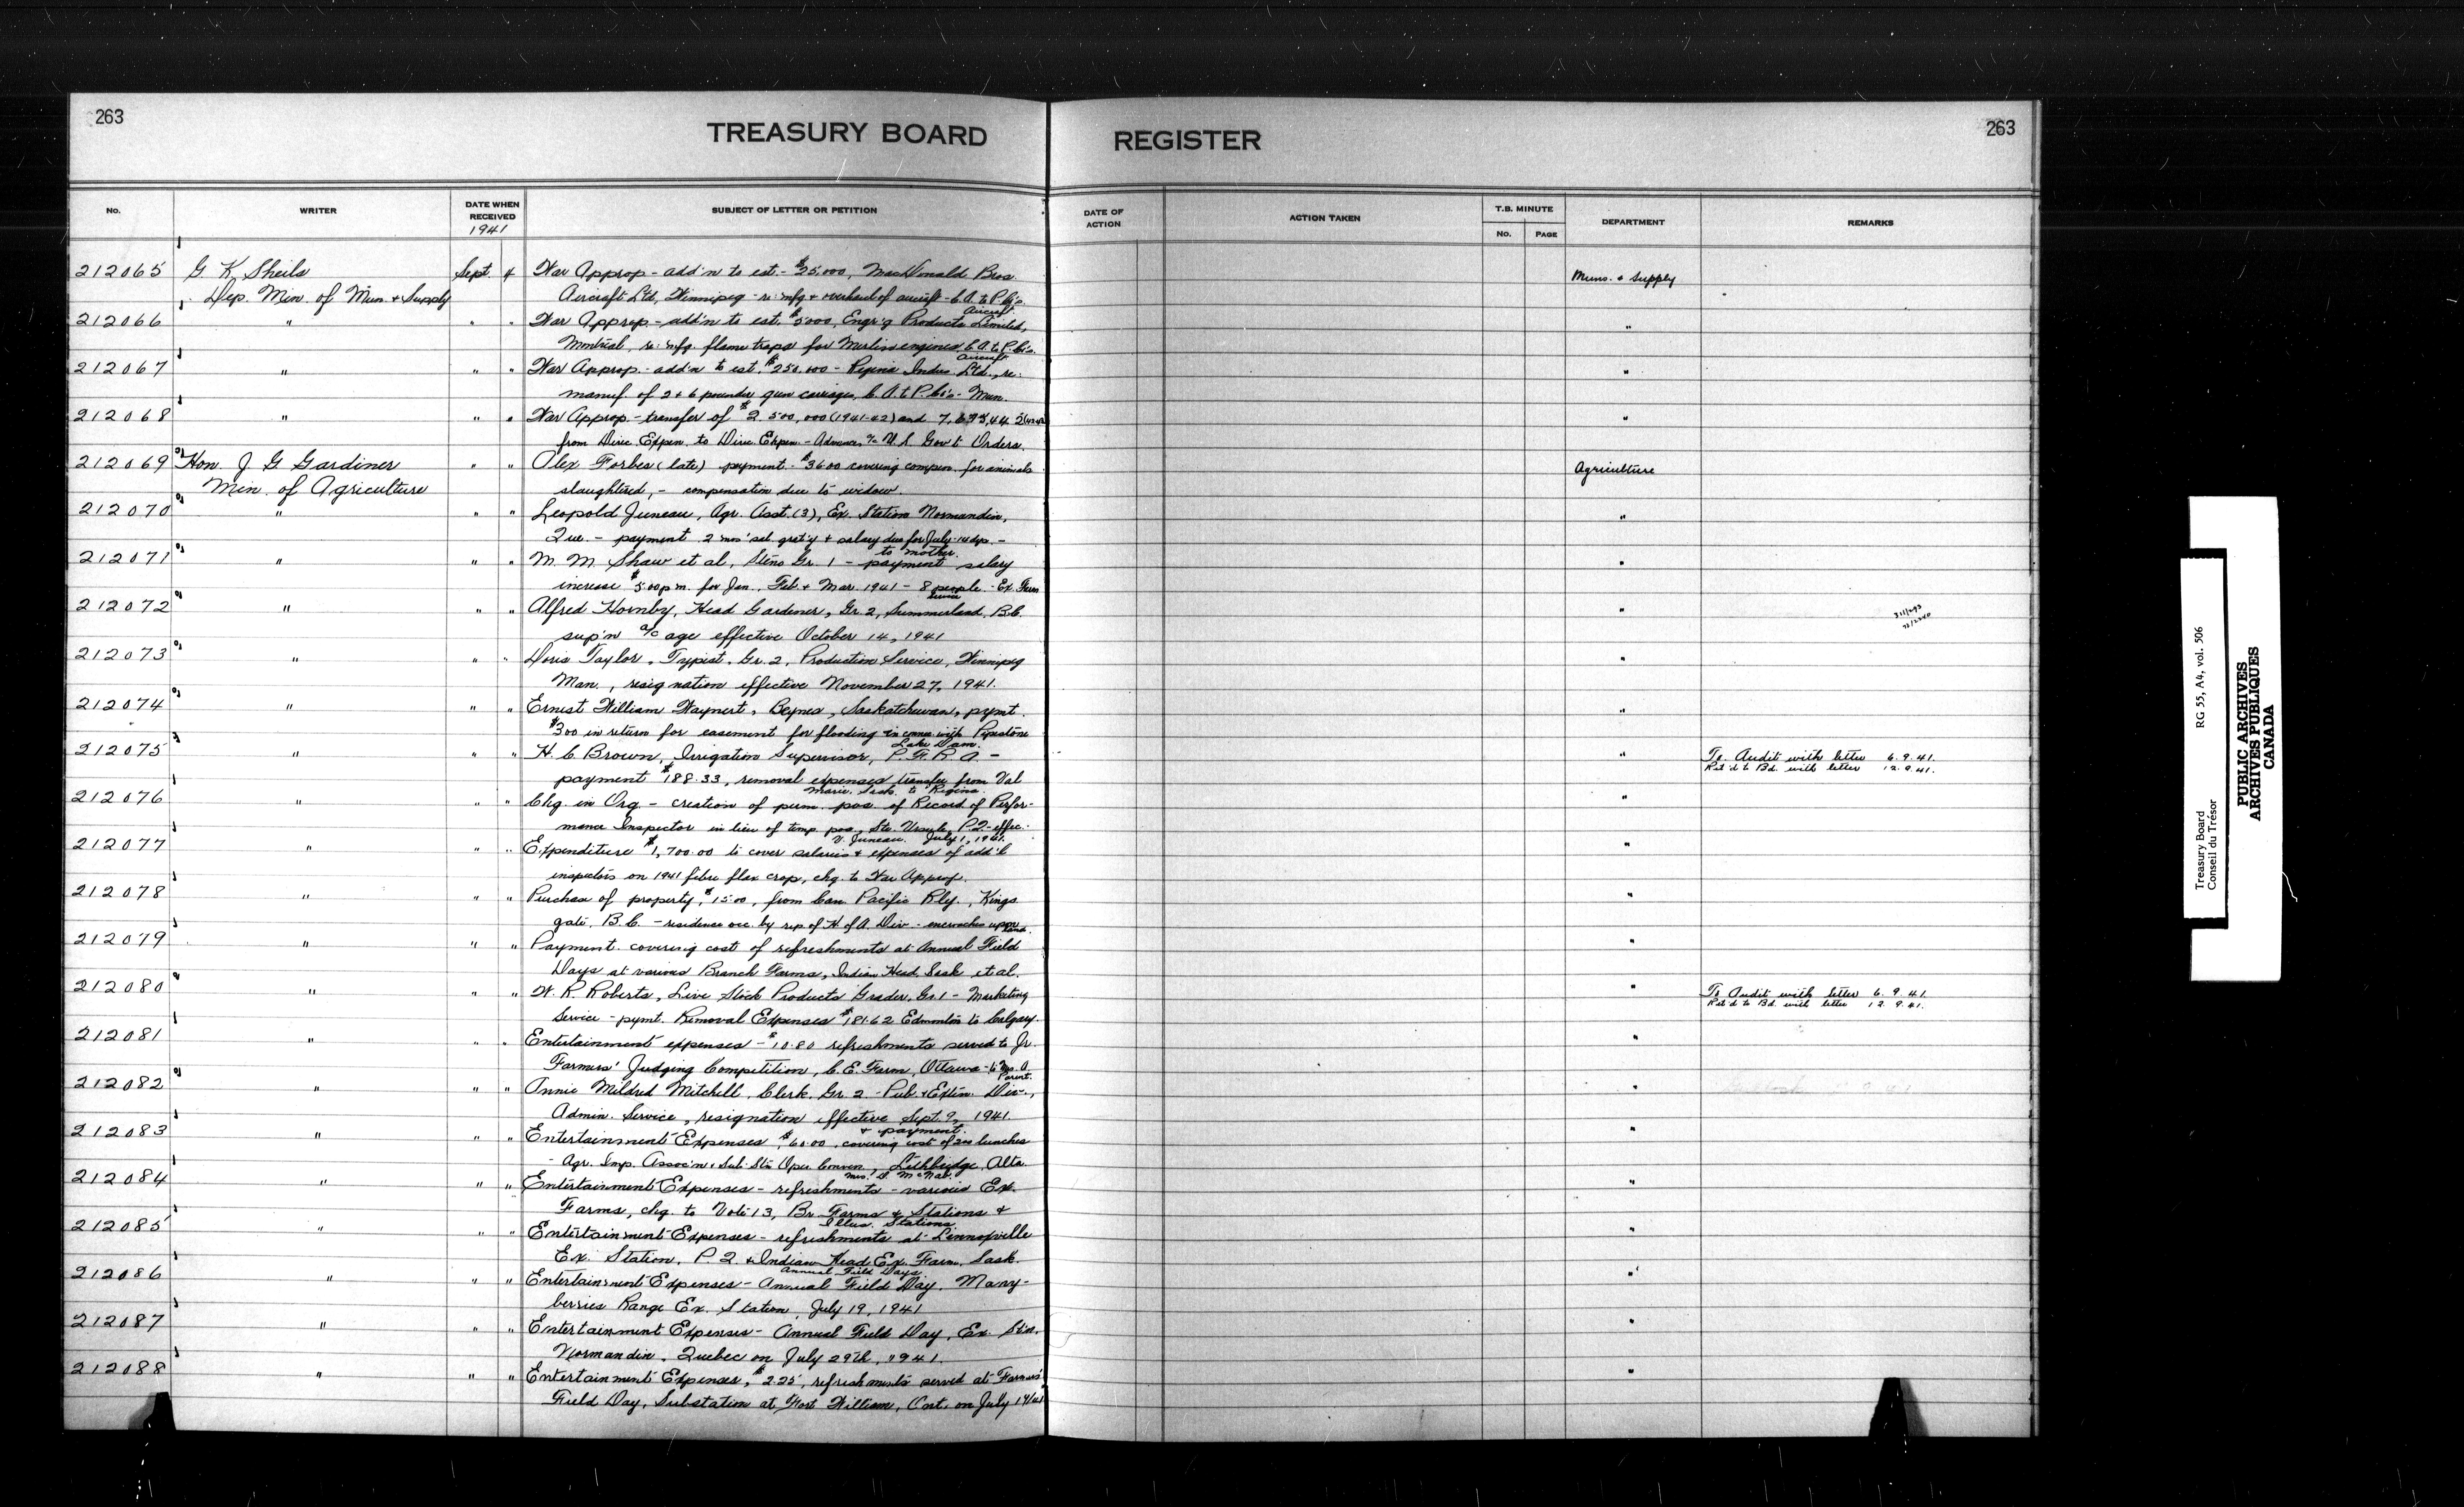 263
TREASURY BOARD
REGISTER
263
No.
WRITER
DATE WHEN RECEIVED
1941
SUBJECT OF LETTER OR PETITION
DATE OF ACTION
ACTION TAKEN
T.B. MINUTE
No.
PAGE
DEPARTMENT
REMARKS
212065 G K Sheils Sept. 4 War Approp - add'n to est. - $25,000, MacDonald Bros. Muns. & Supply
Dep. Min. of Mun. & Supply Aircraft Ltd, Winnipeg - re: mfg & overhaul of aircraft - C.A. to P. Co's.
Aircraft
212066 " " " War Approp - add'n to est. $5000, Engr'g Products Limited, "
Montreal, re: mfg. flame traps for Merlin engines C.A. to P. Co's.
Aircraft
212067 " " " War Approp. - add'n to est. $250,000 - Regina Indus. Ltd., re: "
manuf. of 2 & 6 pounder gun carriages, C.A. to P. Co's - Mun.
212068 " " " War Approp - transfer of $2,500,000 (1941-42) and "
from Dire. Expen. to Dire. Expen. - Advances a/c U.S. Gov't Orders.
212069 Hon. J G Gardiner " " Alex Forbes (late) payment - $36.00 covering compen. for animals Agriculture
Min. of Agriculture slaughtered, - compensation due to widow.
212070 " " " Leopold Juneau, Agr. Asst. (3), Ex. Station Normandin, "
Que. - payment 2 mos' sal. grat'y & salary due for July - 14 dys. -
to mother.
212071 " " " M. M. Shaw et al, Steno Gr. 1 - payment salary "
increase $5.00 p.m. for Jan., Feb & Mar. 1941 - 8 people - Ex Farm
Service
212072 " " " Alfred Hornby, Head Gardener, Gr. 2, Summerland, B.C. "
sup'n a/c age effective October 14, 1941
212073 " " " Doris Taylor, Typist, Gr. 2, Production Service, Winnipeg "
Man., resignation effective November 27, 1941.
212074 " " " Ernest William Waynert, Saskatchewan, pymt. "
$300 in return for easement for flooding in connex with Pipestone
Lake Dam.
212075 " " " H. C. Brown, Irrigation Supervisor, P. F. R. A - " To Audit with letter 6.9.41.
payment $188.33, removal expenses transfer from Val Ret'd to Bd. with letter 12.9.41.
Marie, Sask. to Regina.
212076 " " " Chg. in Org - creation of perm. pos. of Record of Perfor- "
mance Inspector in lieu of temp. pos., Ste. Ursule, P.Q. - effec.
V. Juneau. July 1, 1941.
212077 " " " Expenditure $1,700.00 to cover salaries & expenses of add'l "
inspectors on 1941 fibre flax crop, chg. to War Approp.
212078 " " " Purchase of property, $15.00, from Can. Pacific Rly., Kings "
gate, B.C. - residence occ. by rep of H of A. Div - encroaches upon
land.
212079 " " " Payment covering cost of refreshments at Annual Field "
Days at various Branch Farms, Indian Head, Sask et al.
212080 " " " W. R. Roberts, Live Stock Products Grader, Gr. 1 - Marketing " To Audit with letter 6.9.41.
Service - pymt. Removal Expenses $181.62 Edmonton to Calgary. Ret'd to Bd. with letter 12.9.41.
212081 " " " Entertainment expenses - $10.80 refreshments served to Jr. "
Farmers' Judging Competition, C. E. Farm, Ottawa - to Mrs. A.
Parent.
212082 " " " Annie Mildred Mitchell, Clerk, Gr. 2 - Pub. & Exten. Div., "
Admin. Service, resignation effective Sept. 9, 1941
& payment.
212083 " " " Entertainment Expenses, $60.00, covering cost of 200 lunches "
- Agr. Imp. Assoc'n & Sub-Stn Oper. Conven, Lethbridge, Alta.
Mrs. McNab.
212084 " " " Entertainment Expenses - refreshments - various Ex. "
Farms, chg. to Vote 13, Br Farms & Stations &
Illus. Stations.
212085 " " " Entertainment Expenses - refreshments at Lennoxville "
Ex. Station, P. Q. & Indian Head Ex. Farm, Sask.
Annual Field Days.
212086 " " " Entertainment Expenses - Annual Field Day, Many- "
berries Range Ex. Station, July 19, 1941
212087 " " " Entertainment Expenses - Annual Field Day, Ex. Stn. "
Normandin, Quebec on July 29th, 1941.
212088 " " " Entertainment Expenses, $2.25, refreshments served at Farmers' "
Field Day, Substation at Fort William, Ont. on July 14/41
Treasury Board RG 55, A4, vol. 506
Conseil du Trésor
PUBLIC ARCHIVES
ARCHIVES PUBLIQUES
CANADA